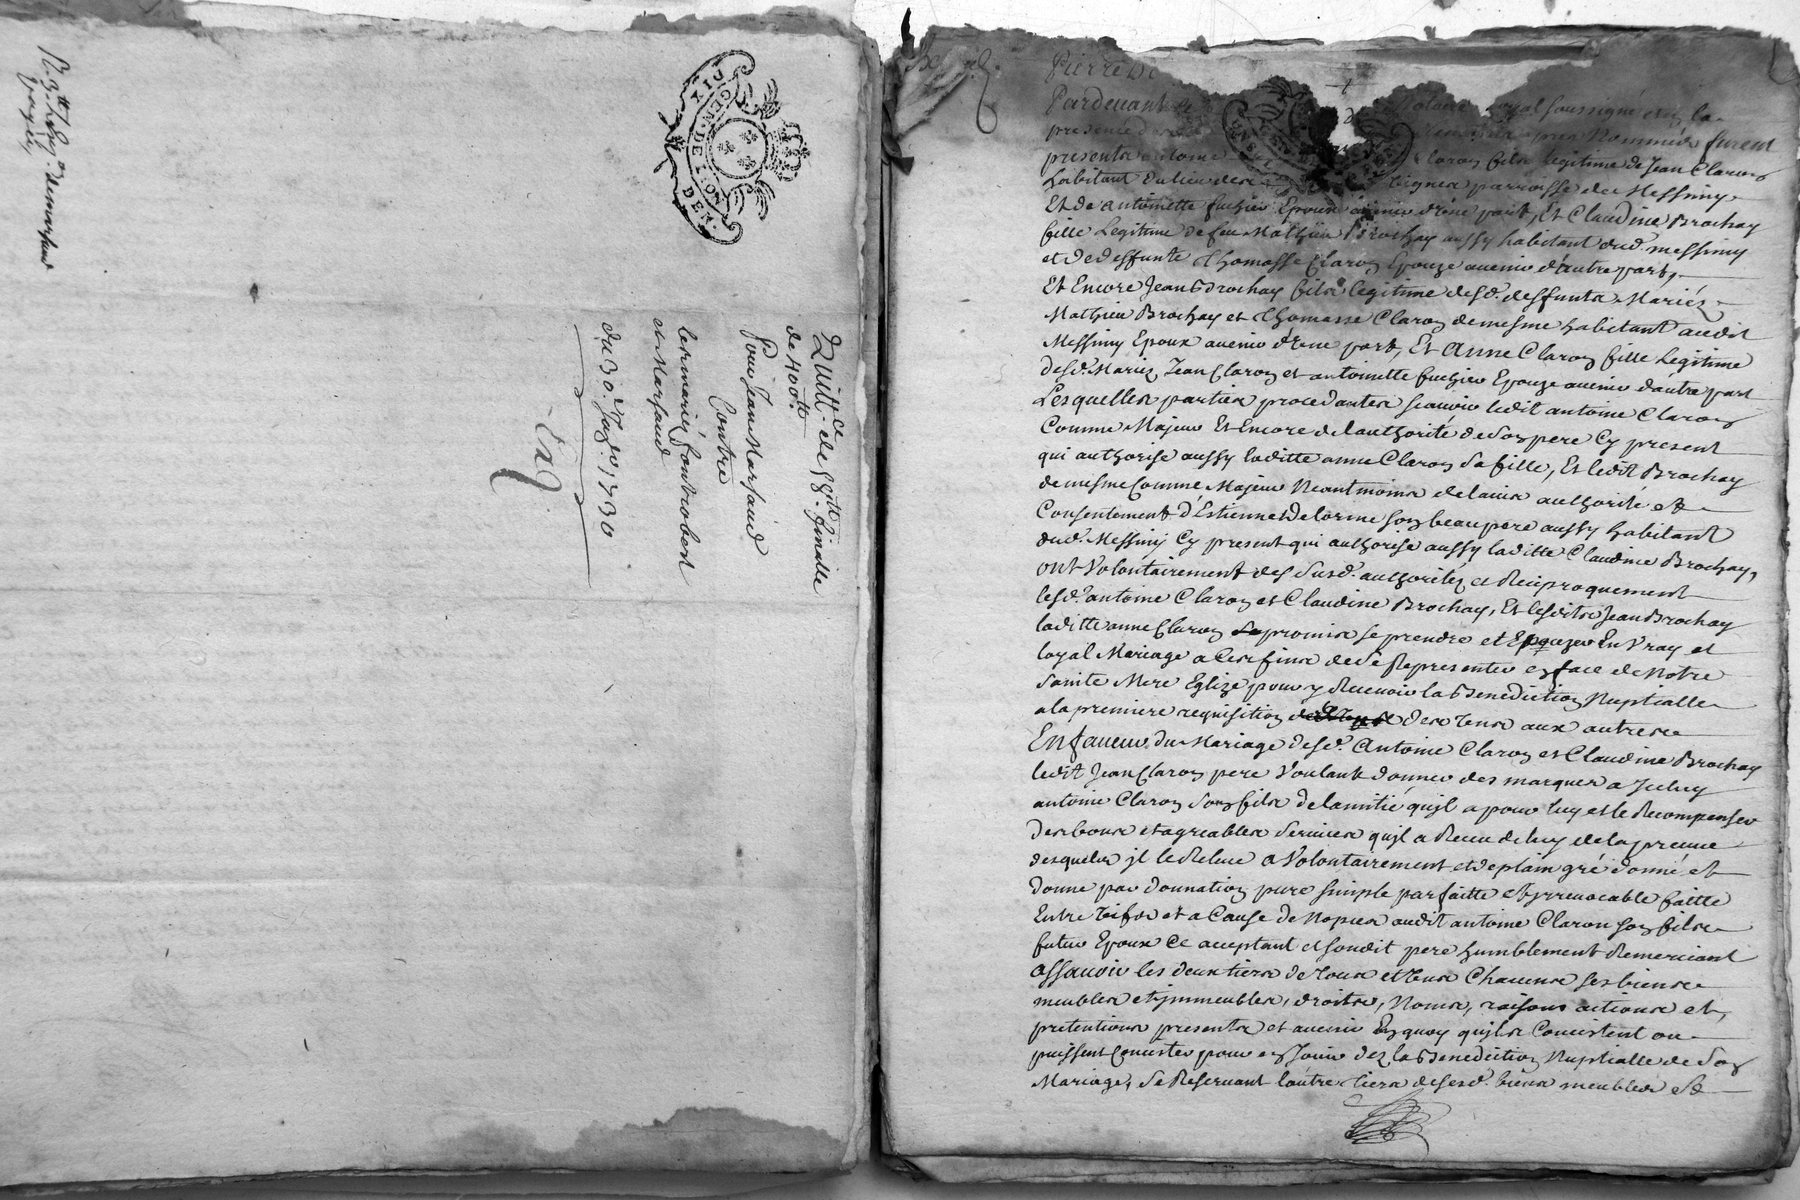 Quitt.ce de 58tt finalle
de 40tt
Pour Jean Marsaud
Contre
les mariés fontrobert
et Marsaud
du 30e Jar. 1730
GEN. DE LION
DEN.
Pierre
Pardevant Notaire Royal soussigné et en la
presence de apres Nommés furent
presents antoine Claron fils legitime de Jean Claron
habitant du lieu des parroisse de Messimy
Et de antoinette Epoux avenir d'une part, Et Claudine Brochay
fille Legitime de feu Mathieu Brochay aussy habitant dud. messimy
et de deffunte Thomasse Claron Epouze avenir d'autre part,
Et Encore Jean Brochay fils legitime desd. deffunts Mariés
Mathieu Brochay et Thomasse Claron de mesme habitant audit
Messimy Epoux avenir d'une part, Et Anne Claron fille Legitime
desd. Mariez Jean Claron et antoinette Epouze avenir d'autre part
Lesquelles parties procedantes scauoir ledit antoine Claron
Comme Majeur Et Encore de l'authorité de son pere Cy present
qui authorise aussy laditte anne Claron sa fille, Et ledit Brochay
de mesme Comme Majeur Neantmoins de l'auis authorité et
Consentement d'Estienne Delorme son beaupere aussy habitant
dud. Messimy Cy present qui authorise aussy laditte Claudine Brochay,
ont Volontairement des susd. authoritéz et Reciproquement
lesd. antoine Claron et Claudine Brochay, Et lesdits Jean Brochay
laditte anne Claron promis se prendre et Epouzer En Vray et
loyal Mariage a Ces fins de se Representer en face de Notre
Sainte Mere Eglize pour y Receuoir la Benediction Nuptialle
a la premiere requisition des Uns aux autres
En faueur du Mariage desd. Antoine Claron et Claudine Brochay
ledit Jean Claron pere Voulant donner des marques a Iceluy
antoine Claron son fils de lamitié qu'jl a pour luy et le Recompenser
des bons et agreables seruices qu'jl a Receu de luy de la preuue
desquels jl le Releue a Volontairement et de plain gré donné et
donne par donnation pure simple parfaitte et jrreuocable faitte
Entre Vifs et a Cause de Nopces audit antoine Claron son fils
futur Epoux Ce acceptant et sondit pere humblement Remerciant
assauoir les deux tiers de tous et Uns Chacuns ses biens
meubles et jmmeubles, droits, Noms, raisons actions et,
pretentions presents et auenir En quoy qu'jls Concistent ou
puissent Concister pour en Jouir dez la Benediction Nuptialle de son
Mariage, se Reseruant l'autre tiers de sesd. biens meubles et